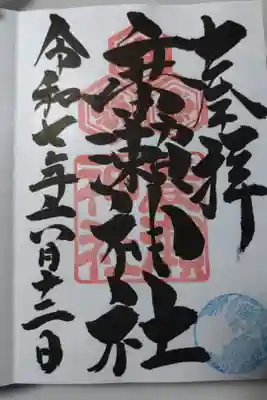 奉拝
廣瀬神社
令和七年六月十二日